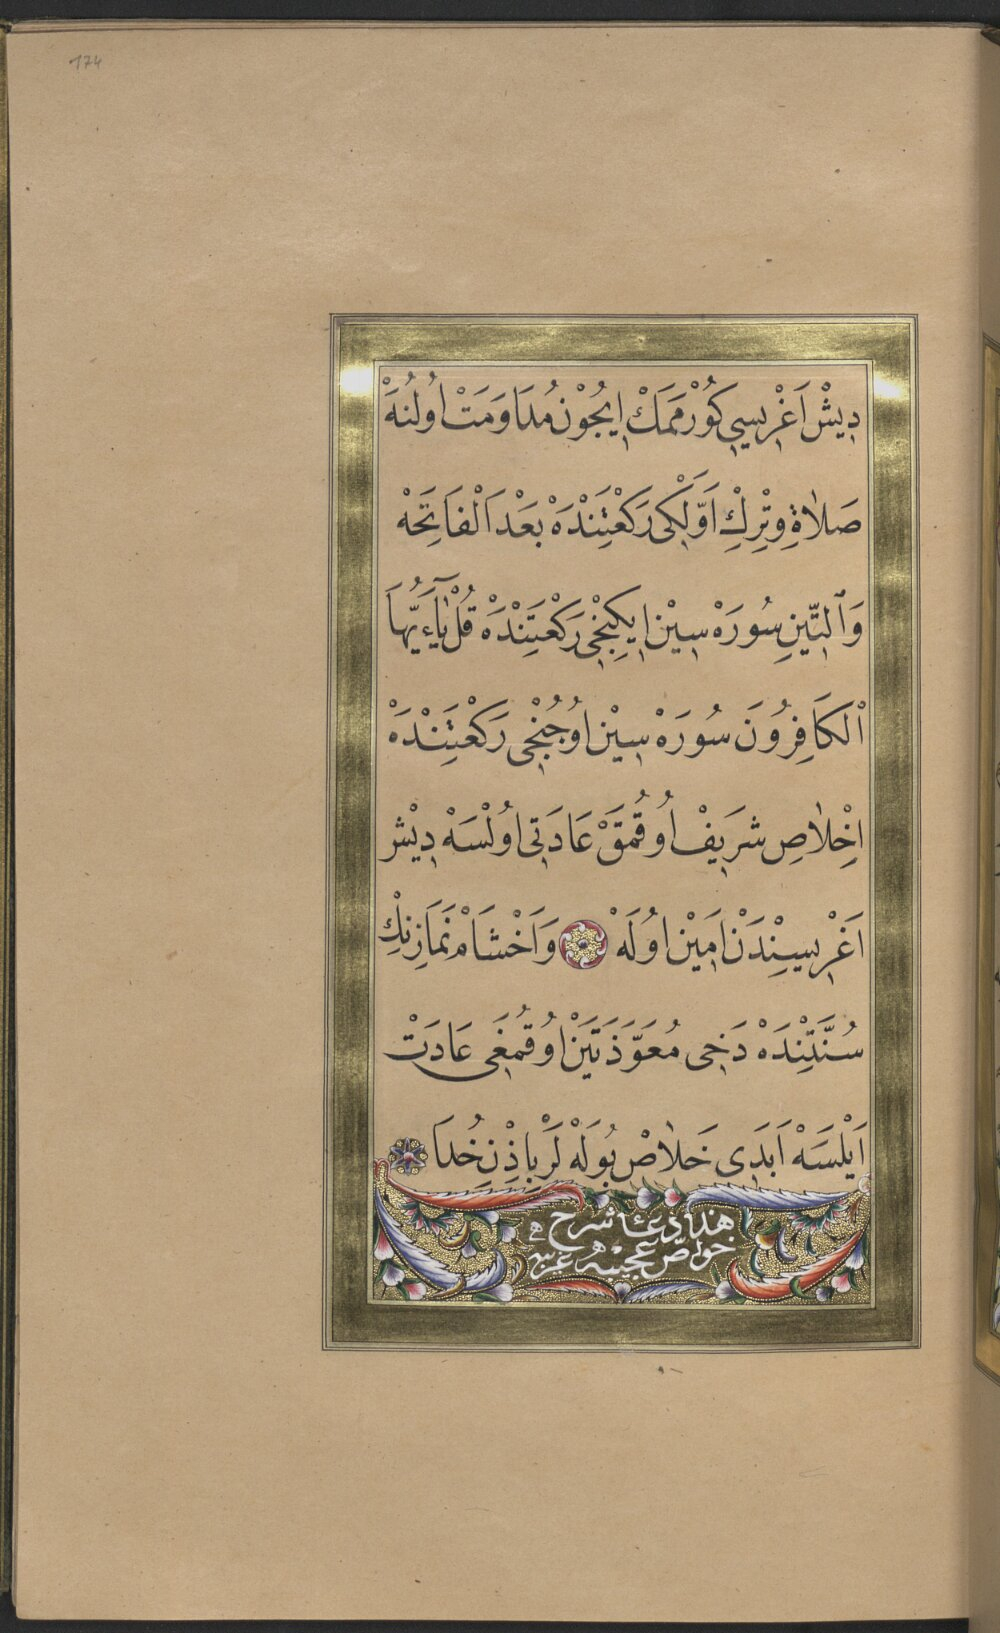 174
دِيشْ اَغْرِيسِي كُورْمَمَكْ اِيجُوْنْ مُدَاوَمَتْ اُولُنَهْ
صَلَاةِ وِتْرِكْ اَوَّلْكِى رَكْعَتِنْدَهْ بَعْدَ الْفَاتِحَهْ
وَٱلتِّينِ سُورَهْ سِيْنِ اِيكِنْجِى رَكْعَتِنْدَهْ قُلْ يَٓا ءَيُّهَا
الْكَافِرُونَ سُورَهْ سِيْنِ اوُجُنْجِى رَكْعَتِنْدَهْ
اِخْلَاصِ شَرِيفْ اُوقُمَقْ عَادَتِى اوُلْسَهْ دِيْشْ
اَغْرِيسِيْنِدَنْ اَمِيْنْ اوُلَهْ وَاَخْشَامْ نَمَازِنِكْ
سُنَّتِنْدَهْ دَخِى مُعَوَّذَتَيْنِ اوُقُمَغِى عَادَتْ
اَيْلَسَهْ اَبَدِى خَلَاصْ بُولَهْ لَرْ بِاِذْنِ خُدَا
هذا دعا شرح
خواص عجيبه غريبه